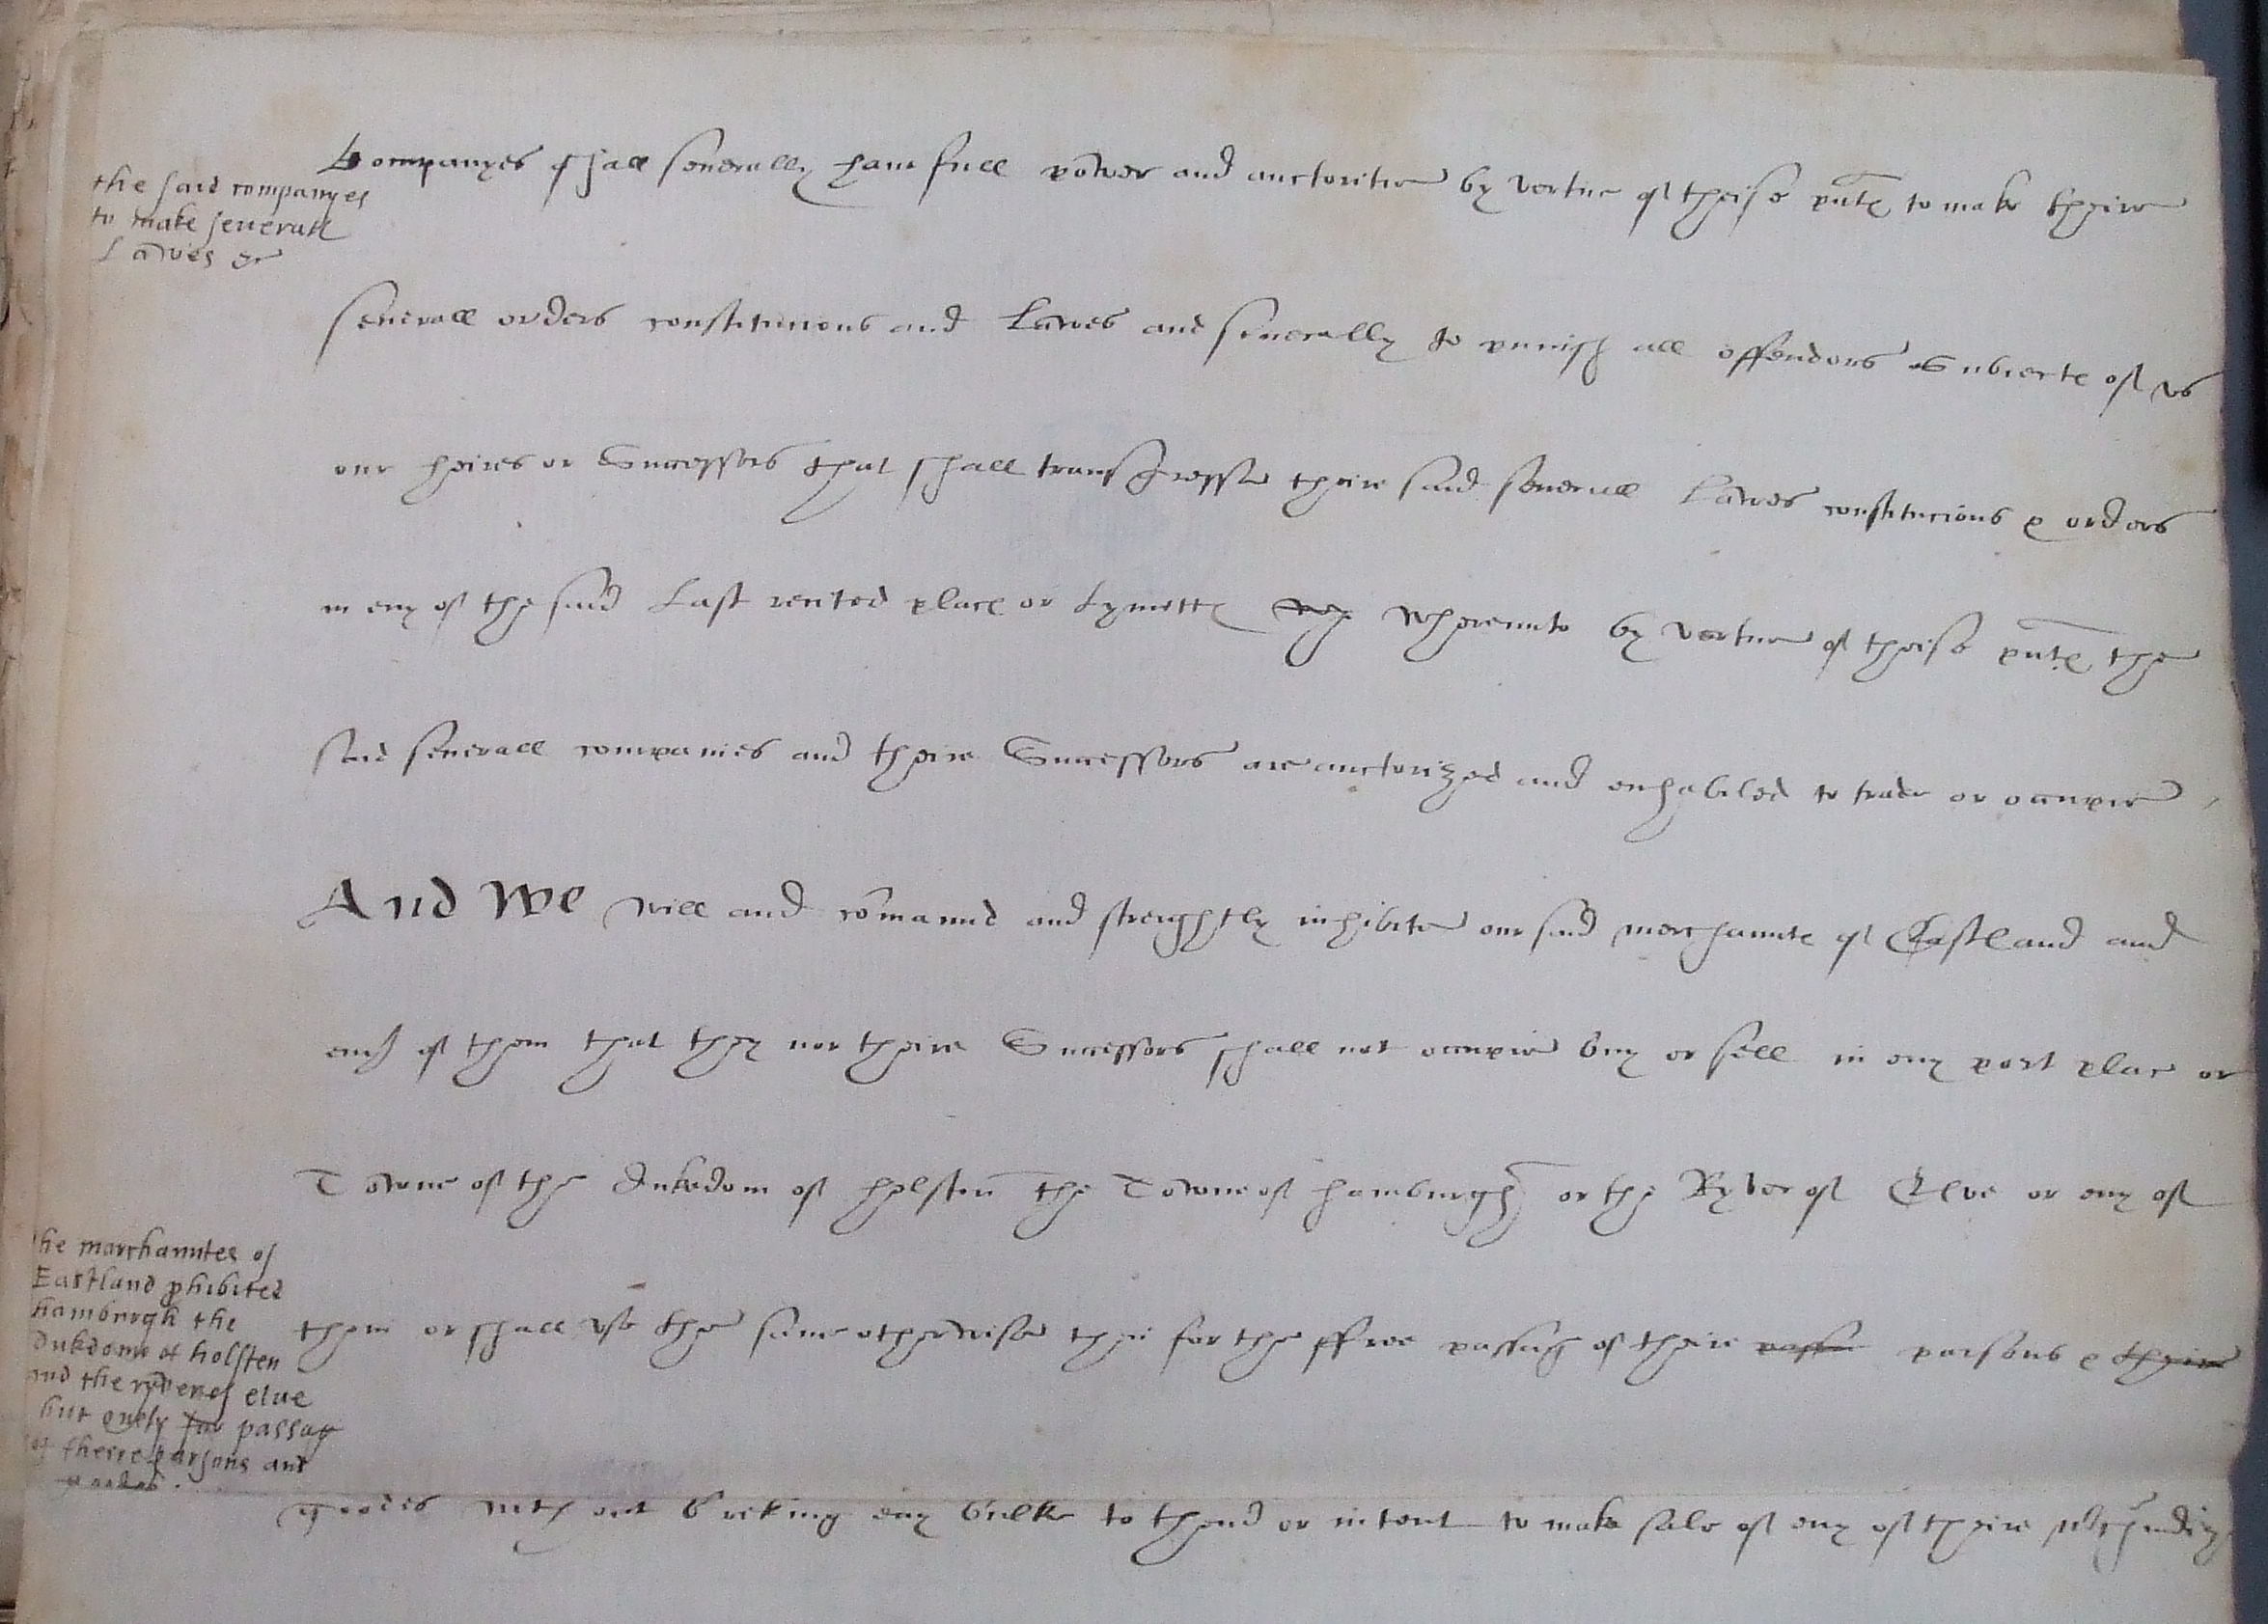 the said companyes
to make seuerall
Lawes &c
Companyes shall seuerally haue full power and auctoritie by vertue of theise pntes to make theire
seuerall orders constitucions and Lawes and seuerally to punish all offendors Subiectes of vs
our heires or Successors that shall transgresse theire said seuerall Lawes constitucions & orders
in eny of the said Last recited place or Lymittes whereunto by vertue of theise pntes the
said seuerall companies and theire Successors are auctorized and enhabiled to trade or occupie
And We will and comaund and streightly inhibite our said merchauntes of Eastland and
ech of them that they nor theire Successors shall not occupie buy or sell in eny port place or
Towne of the dukedom of holsten the Towne of hamburgh or the Ryver of Elve or eny of
the marchauntes of
Eastland phibited
hamburgh the
dukdome of holsten
and the ryver of elue
but onely for passag
of theire parsons and
goodes.
them or shall vse the same otherwise then for the ffree passag of theire parsons & theire
goodes without breking eny bulke to thend or intent to make sale of eny of theire mchndiz